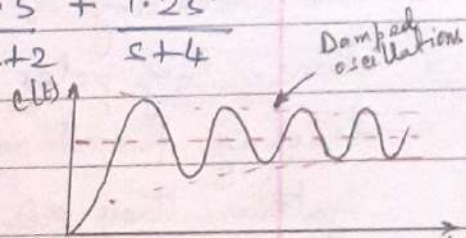 5 + 1.25
s+2 s+4
Damped
oscillations
c(t)